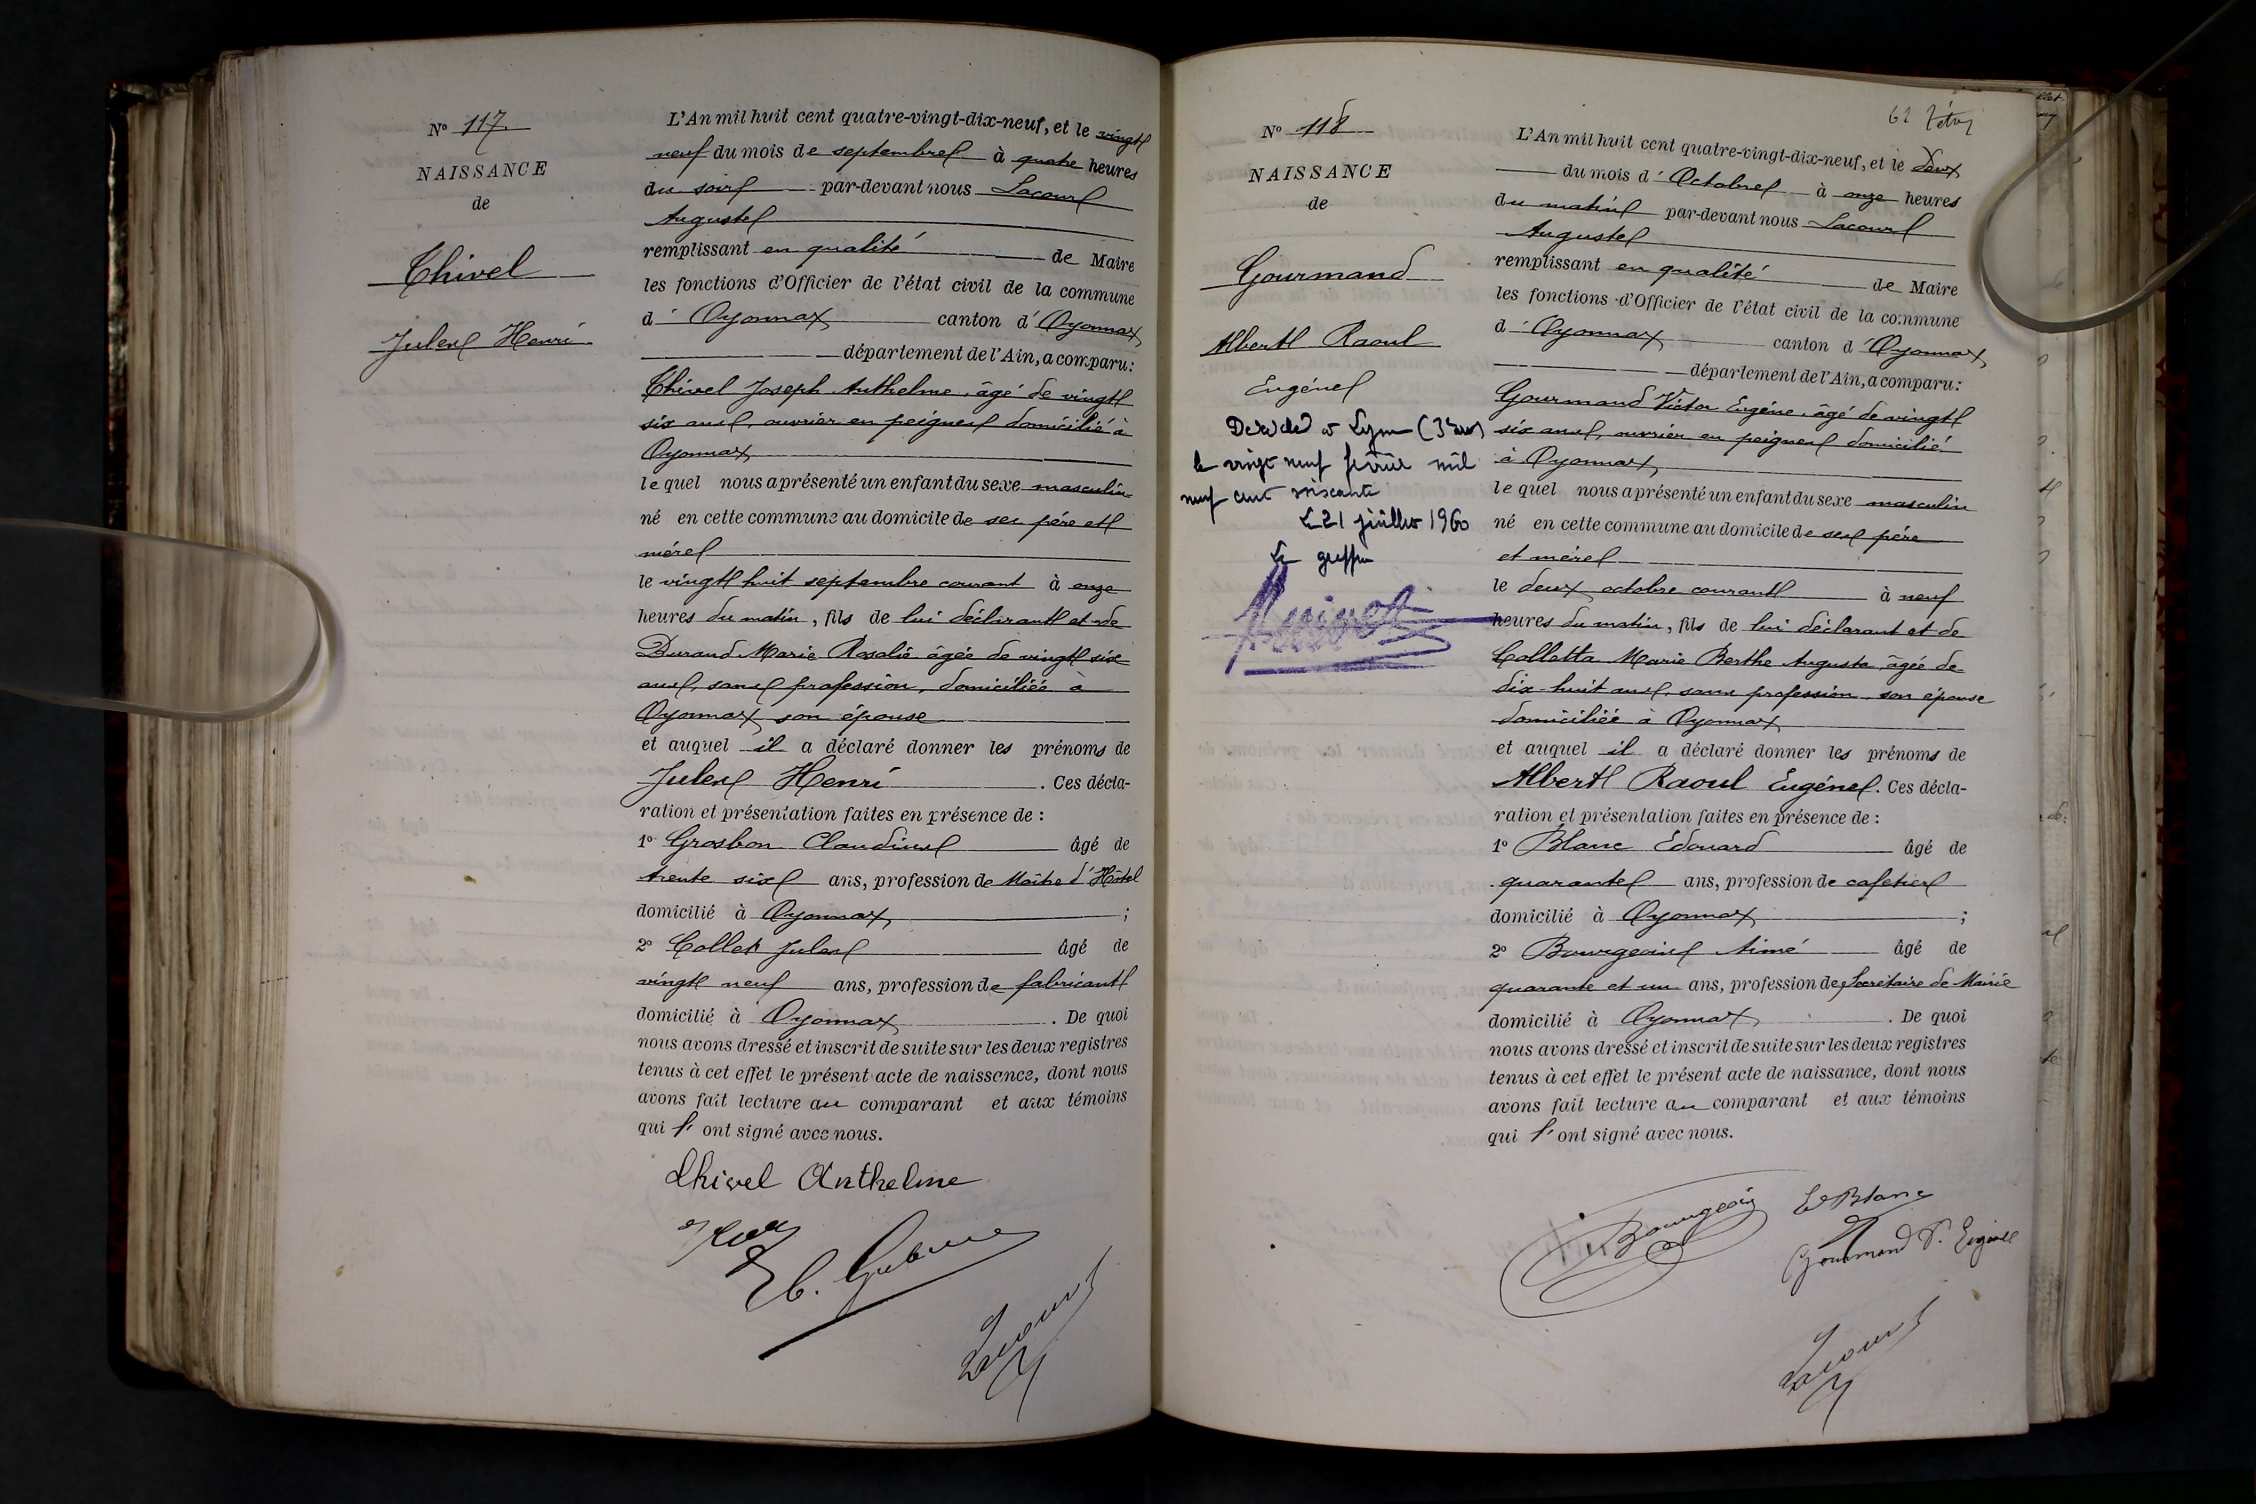 Nº 117
NAISSANCE
de
Thivel
Jules Henri
L'An mil huit cent quatre-vingt-dix-neuf, et le vingt
neuf du mois de septembre à quatre heures
du soir par-devant nous Lacour
Auguste
remplissant en qualité de Maire
les fonctions d'Officier de l'état civil de la commune
d' Oyonnax canton d' Oyonnax
département de l'Ain, a comparu:
Thivel Joseph Anthelme, âgé de vingt
six ans, ouvrier en peignes domicilié à
Oyonnax
lequel nous a présenté un enfant du sexe masculin
né en cette commune au domicile de ses père et
mère
le vingt huit septembre courant à onze
heures du matin, fils de lui déclarant et de
Durand Marie Rosalie âgée de vingt six
ans, sans profession, domiciliée à
Oyonnax son épouse
et auquel il a déclaré donner les prénoms de
Jules Henri . Ces décla-
ration et présentation faites en présence de :
1º Grosbon Claudius âgé de
trente six ans, profession de Maître d'Hôtel
domicilié à Oyonnax ;
2º Collet Jules âgé de
vingt neuf ans, profession de fabricant
domicilié à Oyonnax . De quoi
nous avons dressé et inscrit de suite sur les deux registres
tenus à cet effet le présent acte de naissance, dont nous
avons fait lecture au comparant et aux témoins
qui l' ont signé avec nous.
Thivel Anthelme
Lacour
62
Nº 118
NAISSANCE
de
Gourmand
Albert Raoul
Eugène
Décédé à Lyon (3e
le vingt neuf février mil
neuf cent soixante
Le 21 juillet 1960
Le greffier
L'An mil huit cent quatre-vingt-dix-neuf, et le deux
du mois d' Octobre à onze heures
du matin par-devant nous Lacour
Auguste
remplissant en qualité de Maire
les fonctions d'Officier de l'état civil de la commune
d' Oyonnax canton d' Oyonnax
département de l'Ain, a comparu:
Gourmand Victor Eugène, âgé de vingt
six ans, ouvrier en peignes domicilié
à Oyonnax
lequel nous a présenté un enfant du sexe masculin
né en cette commune au domicile de ses père
et mère
le deux octobre courant à neuf
heures du matin, fils de lui déclarant et de
Colletta Marie Berthe Augusta âgée de
dix-huit ans, sans profession son épouse
domiciliée à Oyonnax
et auquel il a déclaré donner les prénoms de
Albert Raoul Eugène. Ces décla-
ration et présentation faites en présence de :
1º Blanc Edouard âgé de
quarante ans, profession de cafetier
domicilié à Oyonnax ;
2º Bourgeois Aimé âgé de
quarante et un ans, profession de Secrétaire de Mairie
domicilié à Oyonnax . De quoi
nous avons dressé et inscrit de suite sur les deux registres
tenus à cet effet le présent acte de naissance, dont nous
avons fait lecture au comparant et aux témoins
qui l' ont signé avec nous.
Bourgeois
Ed Blanc
Gourmand V. Eugène
Lacour